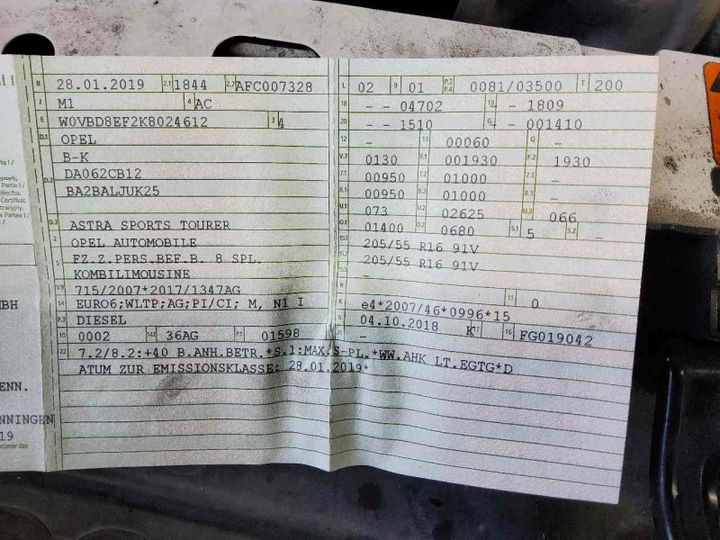 B 28.01.2019 2.1 1844 2.2 AFC007328
J M1 4 AC
E W0VBD8EF2K8024612 3 4
D.1 OPEL
B-K
D.2 DA062CB12
BA2BALJUK25
D.3 ASTRA SPORTS TOURER
2 OPEL AUTOMOBILE
5 FZ.Z.PERS.BEF.B. 8 SPL.
KOMBILIMOUSINE
V.9 715/2007*2017/1347AG
14 EURO6;WLTP;AG;PI/CI; M, N1 I
P.3 DIESEL
10 0002 14.1 36AG P.1 01598
22 7.2/8.2:+40 B.ANH.BETR.*S.1:MAX.5-PL.*WW.AHK LT.EGTG*D
ATUM ZUR EMISSIONSKLASSE: 28.01.2019*
L 02 9 01 P.2 P.4 0081/03500 T 200
18 - - 04702 19 - 1809
20 - - 1510 G - 001410
12 - 13 00060 Q -
V.7 0130 F.1 001930 F.2 1930
7.1 00950 7.2 01000 7.3 -
8.1 00950 8.2 01000 8.3 -
U.1 073 U.2 02625 U.3 066
O.1 01400 O.2 0680 S.1 5 S.2 -
15.1 205/55 R16 91V
15.2 205/55 R16 91V
15.3 -
R 11 0
K e4*2007/46*0996*15
6 04.10.2018 17 K 16 FG019042
21 -
BH
ENN.
NNINGEN
19